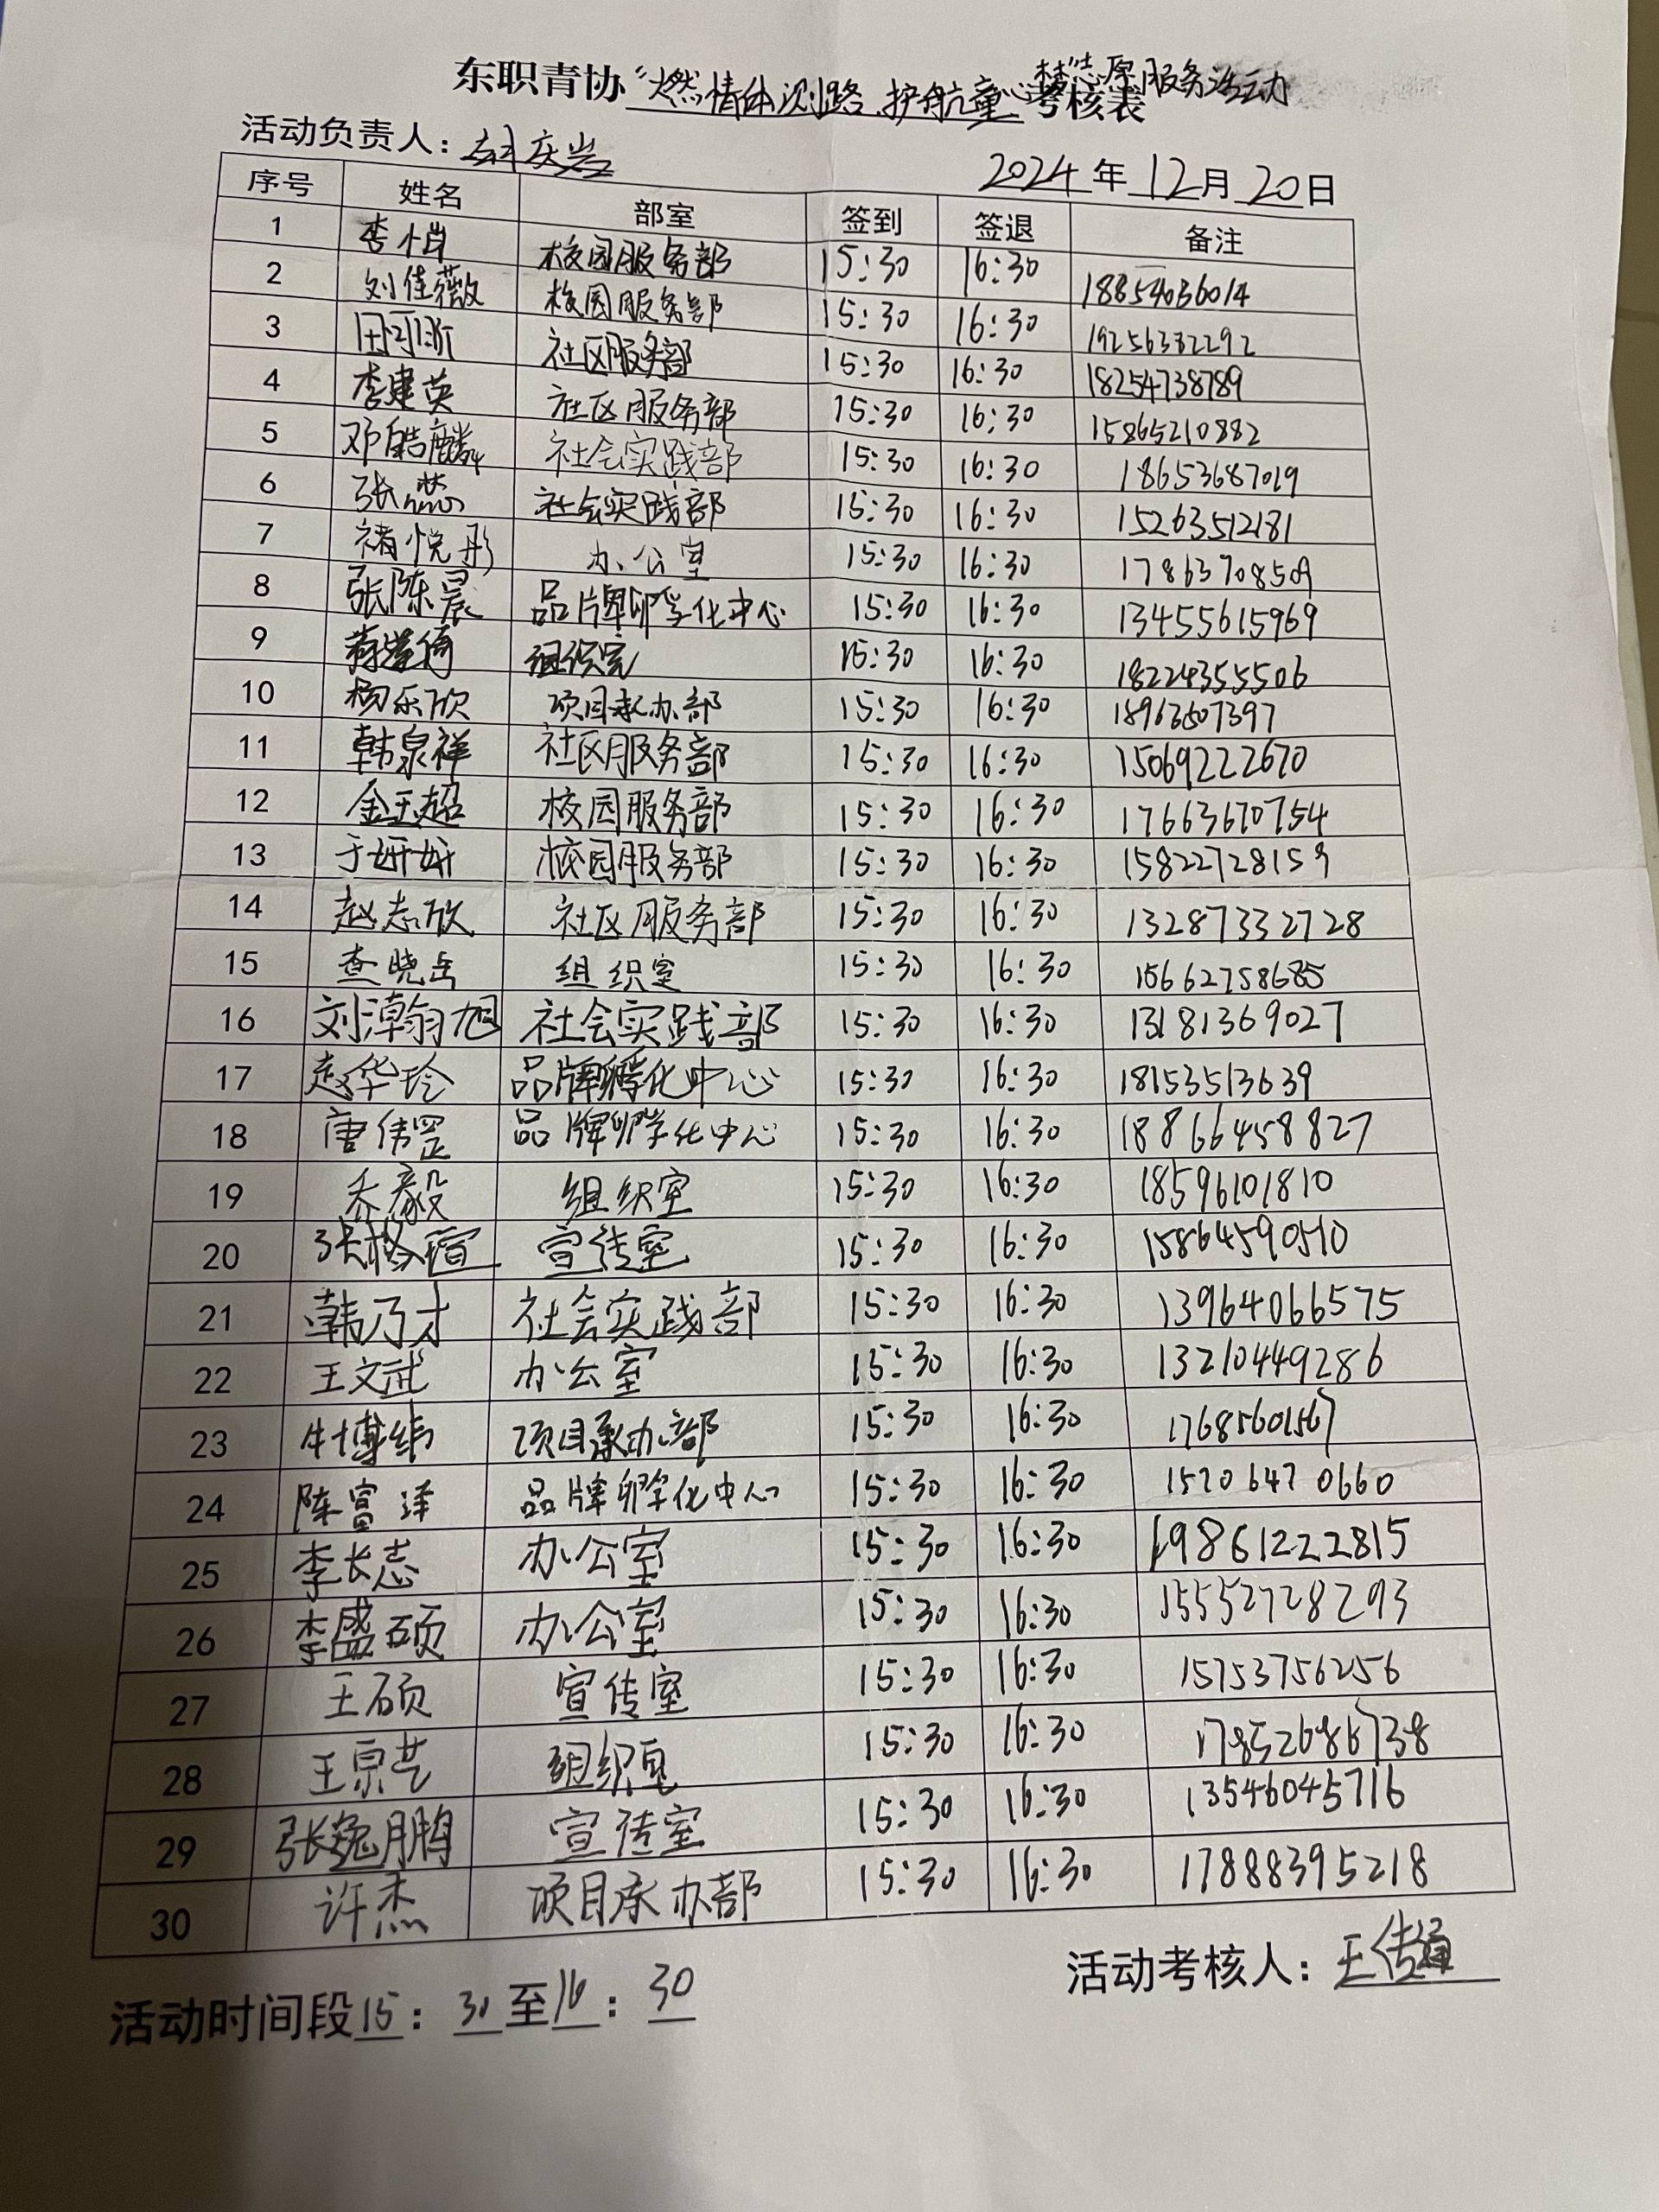 东职青协“燃情体测路、护航童心梦”志愿服务活动考核表
活动负责人： 庆岩 2024年12月20日
序号 姓名 部室 签到 签退 备注
1 李怡 校园服务部 15:30 16:30 18854036014
2 刘佳薇 校园服务部 15:30 16:30 19256382292
3 田可昕 社区服务部 15:30 16:30 18254738789
4 李建英 社区服务部 15:30 16:30 15865210882
5 邓皓麟 社会实践部 15:30 16:30 18653687019
6 张蕊 社会实践部 15:30 16:30 15263512181
7 褚悦彤 办公室 15:30 16:30 17863708509
8 张陈晨 品牌孵化中心 15:30 16:30 13455615969
9 组织室 15:30 16:30 18224355506
10 杨乐欣 项目承办部 15:30 16:30 18963507397
11 韩泉祥 社区服务部 15:30 16:30 15069222670
12 金玉超 校园服务部 15:30 16:30 17663670754
13 于妍妍 校园服务部 15:30 16:30 15822728159
14 赵志欣 社区服务部 15:30 16:30 13287332728
15 查晓岳 组织室 15:30 16:30 15662758685
16 刘潮旭 社会实践部 15:30 16:30 13181369027
17 赵华玲 品牌孵化中心 15:30 16:30 18153513639
18 唐伟罡 品牌孵化中心 15:30 16:30 18866458827
19 乔毅 组织室 15:30 16:30 18596101810
20 张格瑄 宣传室 15:30 16:30 15864590510
21 韩乃才 社会实践部 15:30 16:30 13964066575
22 王文武 办公室 15:30 16:30 13210449286
23 牛博纬 项目承办部 15:30 16:30 17685601567
24 陈富泽 品牌孵化中心 15:30 16:30 15206470660
25 李长志 办公室 15:30 16:30 19861222815
26 李盛硕 办公室 15:30 16:30 15552728293
27 王硕 宣传室 15:30 16:30 15753756256
28 王宗艺 组织室 15:30 16:30 17852686738
29 张逸鹏 宣传室 15:30 16:30 13546045716
30 许杰 项目承办部 15:30 16:30 17888395218
活动时间段15：30至16：30 活动考核人：王传